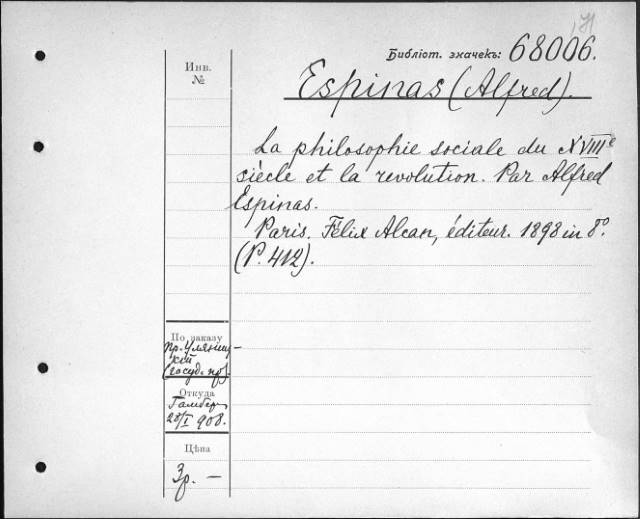 Библіот. значекъ: 68006.
Инв.
№
Espinas (Alfred).
La philosophie sociale du XVIIIe
siècle et la revolution. Par Alfred
Espinas.
Paris. Félix Alcan, éditeur. 1898 in 8°.
(P. 412).
По заказу
пр. Уляниц-
кій
(госуд. пр).
Откуда
28/I 908.
Цѣна
3р. —